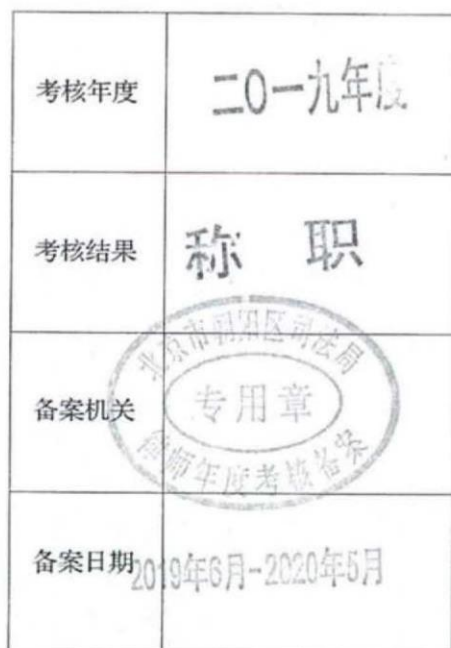 考核年度
二〇一九年度
考核结果
称 职
备案机关
北京市朝阳区司法局
专用章
律师年度考核备案
备案日期
2019年6月-2020年5月